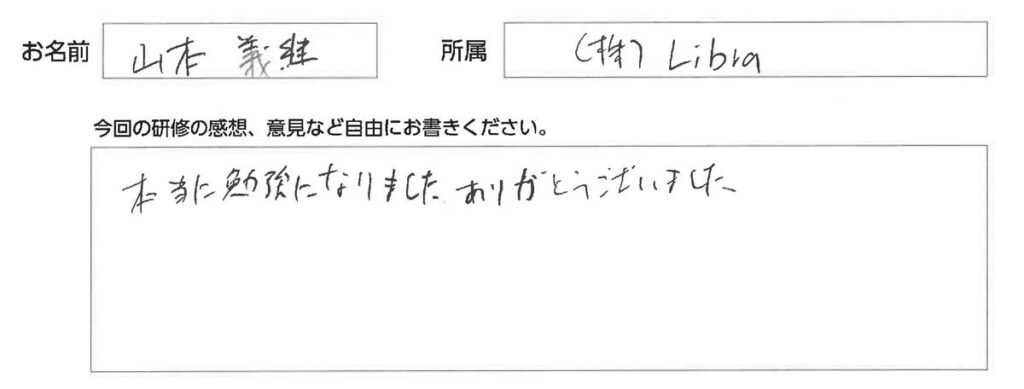 お名前 山本 義継 所属 (株) Libra
今回の研修の感想、意見など自由にお書きください。
本当に勉強になりました ありがとうございました